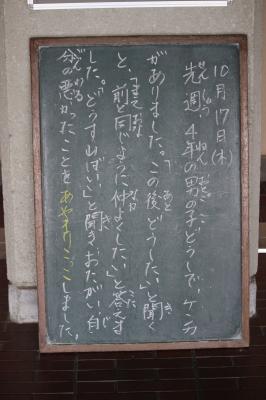 10月17日(木)
先週、4年の男の子どうしで、ケンカ
がありました。「この後どうしたい」と聞く
と、「まえと同じように仲よくしたい」と答えま
した。「どうすればいい」と聞き、おたがい自
分の悪かったことをあやまりっこしました。